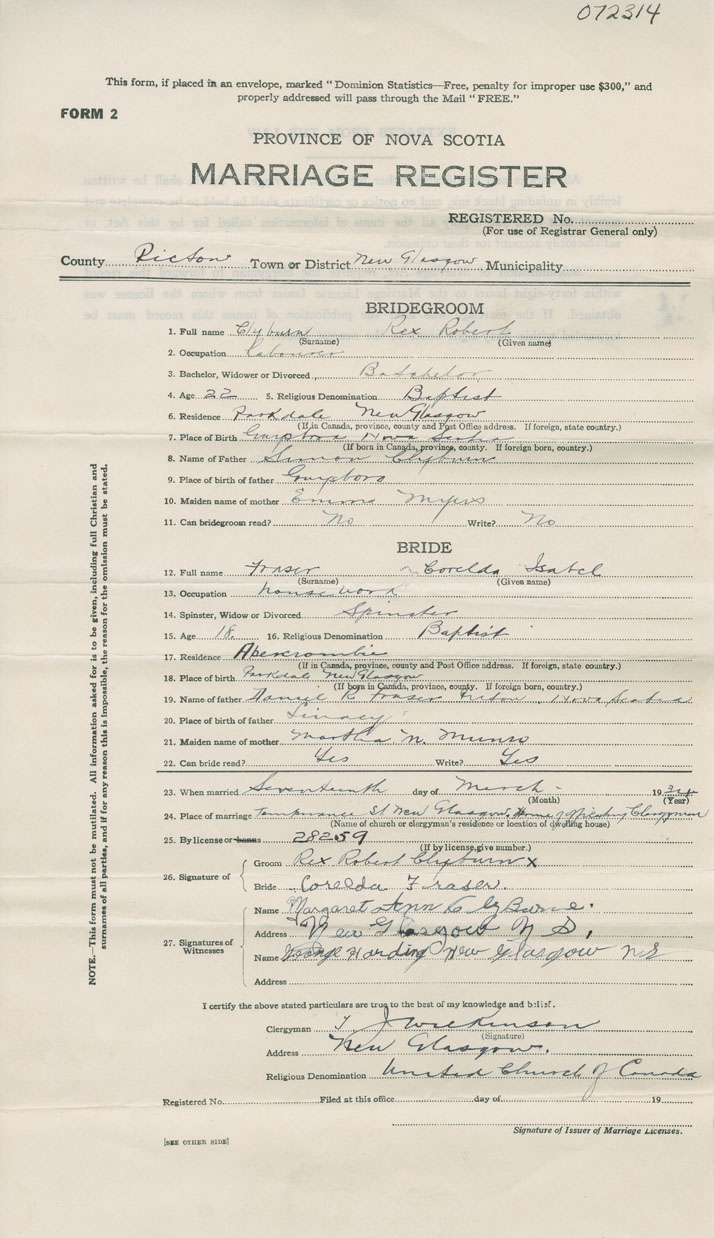 072314
This form, if placed in an envelope, marked "Dominion Statistics—Free, penalty for improper use $300," and
properly addressed will pass through the Mail "FREE."
FORM 2
PROVINCE OF NOVA SCOTIA
MARRIAGE REGISTER
REGISTERED No.
(For use of Registrar General only)
County Pictou Town or District New Glasgow Municipality
BRIDEGROOM
1. Full name Clyburn Rex Robert
(Surname) (Given name)
2. Occupation Labourer
3. Bachelor, Widower or Divorced Batchelor
4. Age 22 5. Religious Denomination Baptist
6. Residence Parkdale New Glasgow
(If in Canada, province, county and Post Office address. If foreign, state country.)
7. Place of Birth Guysboro Nova Scotia
(If born in Canada, province, county. If foreign born, country.)
8. Name of Father Simon Clyburn
9. Place of birth of father Guysboro
10. Maiden name of mother Emma Myers
11. Can bridegroom read? No Write? No
BRIDE
12. Full name Fraser Corelda Isabel
(Surname) (Given name)
13. Occupation house work
14. Spinster, Widow or Divorced Spinster
15. Age 18 16. Religious Denomination Baptist
17. Residence Abercrombie
(If in Canada, province, county and Post Office address. If foreign, state country.)
18. Place of birth Parkdale New Glasgow
(If born in Canada, province, county. If foreign born, country.)
19. Name of father Daniel R Fraser Nova Scotia
20. Place of birth of father
21. Maiden name of mother Martha N. Munro
22. Can bride read? Yes Write? Yes
23. When married Seventeenth day of March 1934
(Month) (Year)
24. Place of marriage Temperance St New Glasgow, Home of Officiating Clergyman
(Name of church or clergyman's residence or location of dwelling house)
25. By license or banns 28259
(If by license, give number.)
26. Signature of
Groom Rex Robert Clyburn x
Bride Corelda Fraser.
27. Signatures of Witnesses
Name Margaret Ann Clyburne.
Address New Glasgow N S,
Name Harding New Glasgow N S
Address
I certify the above stated particulars are true to the best of my knowledge and belief.
Clergyman T J Wilkinson
(Signature)
Address New Glasgow.
Religious Denomination United Church of Canada
Registered No. Filed at this office day of 19
Signature of Issuer of Marriage Licenses.
[SEE OTHER SIDE]
NOTE.—This form must not be mutilated. All information asked for is to be given, including full Christian and
surnames of all parties, and if for any reason this is impossible, the reason for the omission must be stated.